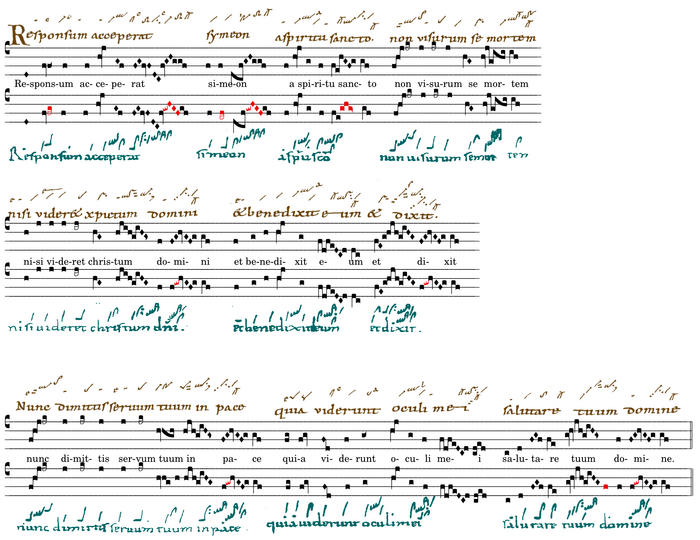 Responsum acceperat symeon a spiritu sancto. non visurum se mortem
Re-spons-um ac-ce-pe-rat si-me-on a spi-ri-tu sanc-to non vi-su-rum se mor-tem
Responsum acceperat simeon
non uisurum semor tem
nisi videret domini & benedixit e um & dixit.
ni-si vi-de-ret chris-tum do-mi-ni et be-ne-di-xit e-um et di-xit
nisi uideret christum dni. et benedixit deum et dixit.
Nunc dimittis servum tuum in pace quia viderunt oculi me i salutare tuum domine
nunc di-mit-tis ser-vum tuum in pa-ce qui-a vi-de-runt o-cu-li me-i sa-lu-ta-re tuum do-mi-ne.
nunc dimittis seruum tuum in pace. quia uiderunt oculi mei salutare tuum domine